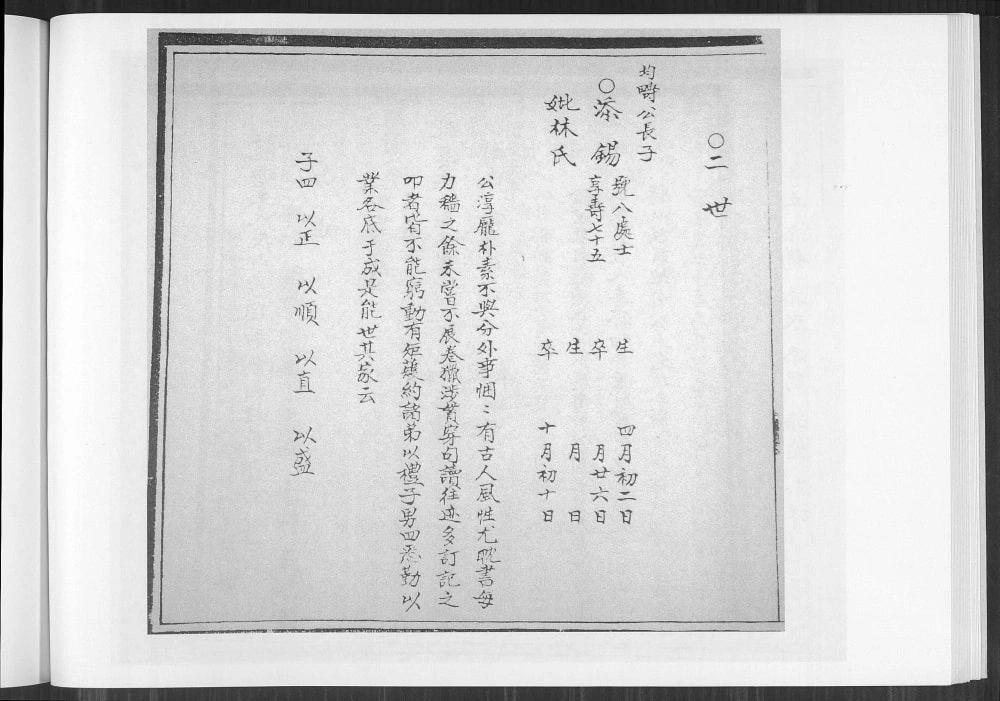 〇二世
均疇公長子
〇添錫
號八處士 生 四月初二日
享壽七十五 卒 月廿六日
妣林氏
生 月 日
卒 十月初十日
公淳龐朴素不與分外事悃〻有古人風性尤耽書每
力穡之餘未嘗不展卷獵涉貫穿句讀往迹多訂記之
叩者皆不能窮動有矩矱約諸弟以禮子男四悉勤以
業各底于成是能世其家云
子四 以正 以順 以直 以盛